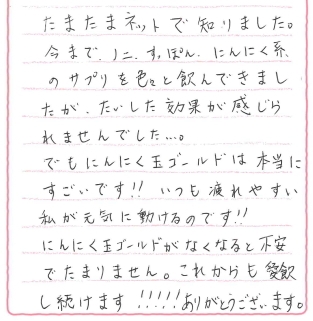 たまたまネットで知りました。
今まで、ノニ、すっぽん、にんにく系
のサプリを色々と飲んできまし
たが、たいした効果が感じら
れませんでした…。
でもにんにく玉ゴールドは本当に
すごいです!! いつも疲れやすい
私が元気に動けるのです!!
にんにく玉ゴールドがなくなると不安
でたまりません。これからも愛飲
し続けます!!!!!ありがとうございます。